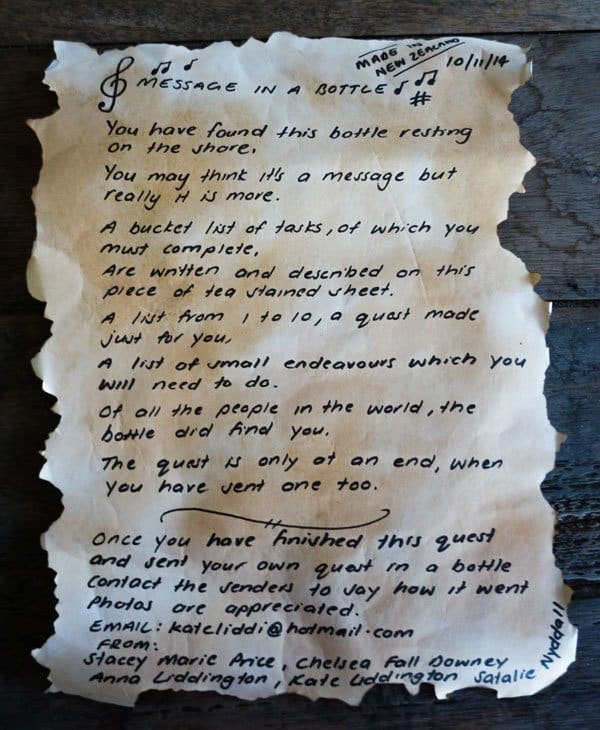 MADE IN NEW ZEALAND
10/11/14
MESSAGE IN A BOTTLE
You have found this bottle resting
on the shore,
You may think it's a message but
really it is more.
A bucket list of tasks, of which you
must complete,
Are written and described on this
piece of tea stained sheet.
A list from 1 to 10, a quest made
just for you,
A list of small endeavours which you
will need to do.
Of all the people in the world, the
bottle did find you.
The quest is only at an end, when
you have sent one too.
Once you have finished this quest
and sent your own quest in a bottle
contact the senders to say how it went
Photos are appreciated.
EMAIL: kateliddi@hotmail.com
FROM:
Stacey Marie Price, Chelsea Fall Downey
Anna Liddington, Kate Liddington Satalie Nyddall